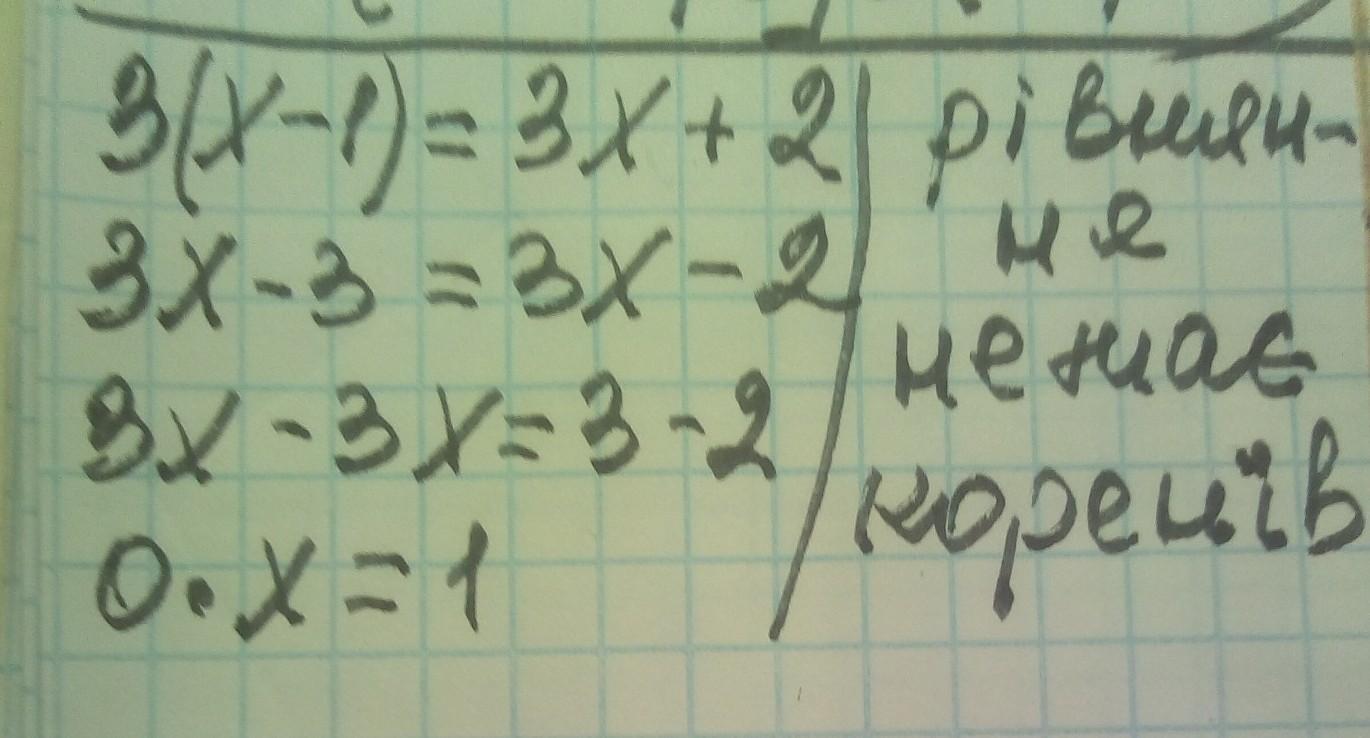 3(x-1)=3x+2
3x-3=3x-2
3x-3x=3-2
0·x=1
рівнян-
ня
не має
коренів